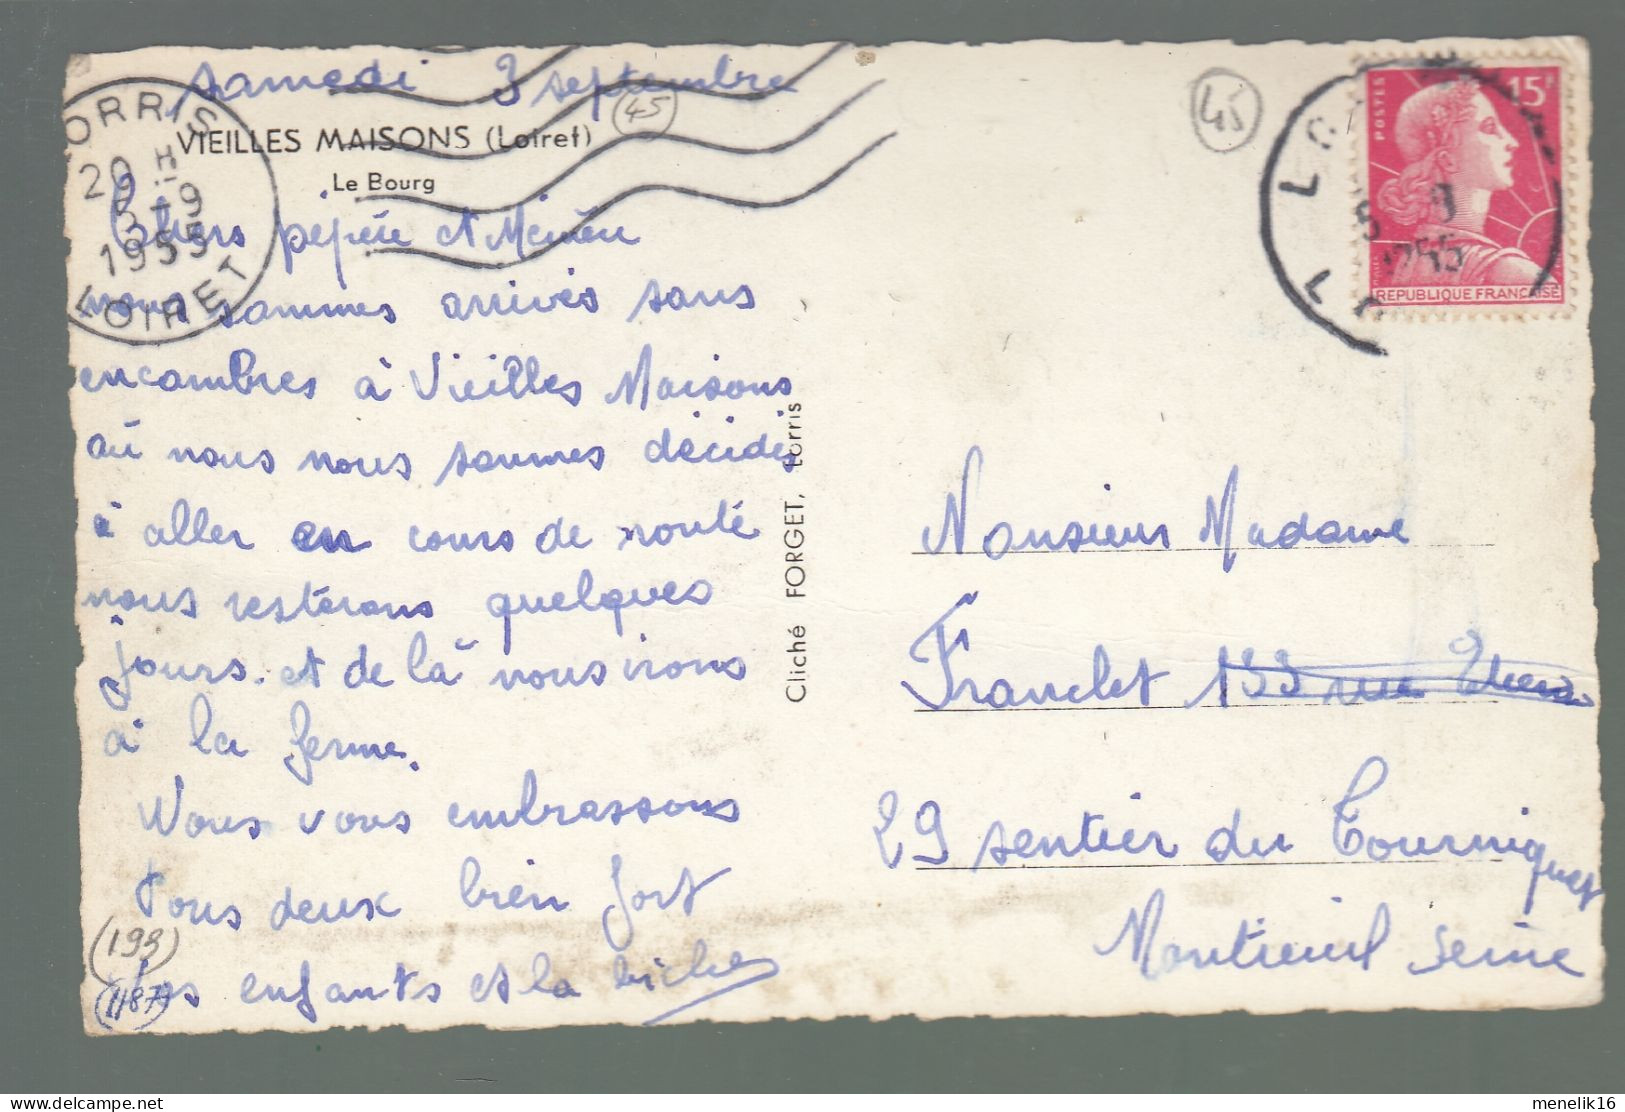 samedi 3 septembre
VIEILLES MAISONS (Loiret)
Le Bourg
45
LORRIS
20 H
3-9
1955
LOIRET
Chers pépère et Mémère
nous sommes arrivés sans
encombres à Vieilles Maisons
où nous nous sommes décidés
à aller en cours de route
nous resterons quelques
jours. et de là nous irons
à la ferme.
Nous vous embrassons
tous deux bien fort
Les enfants et la biche
(199)
(1187)
Cliché FORGET, Lorris
45
POSTES
15F
5 9
1955
REPUBLIQUE FRANÇAISE
Monsieur Madame
Franclet 133 rue
29 sentier du Tourniquet
Montreuil Seine
menelik16
delcampe.net